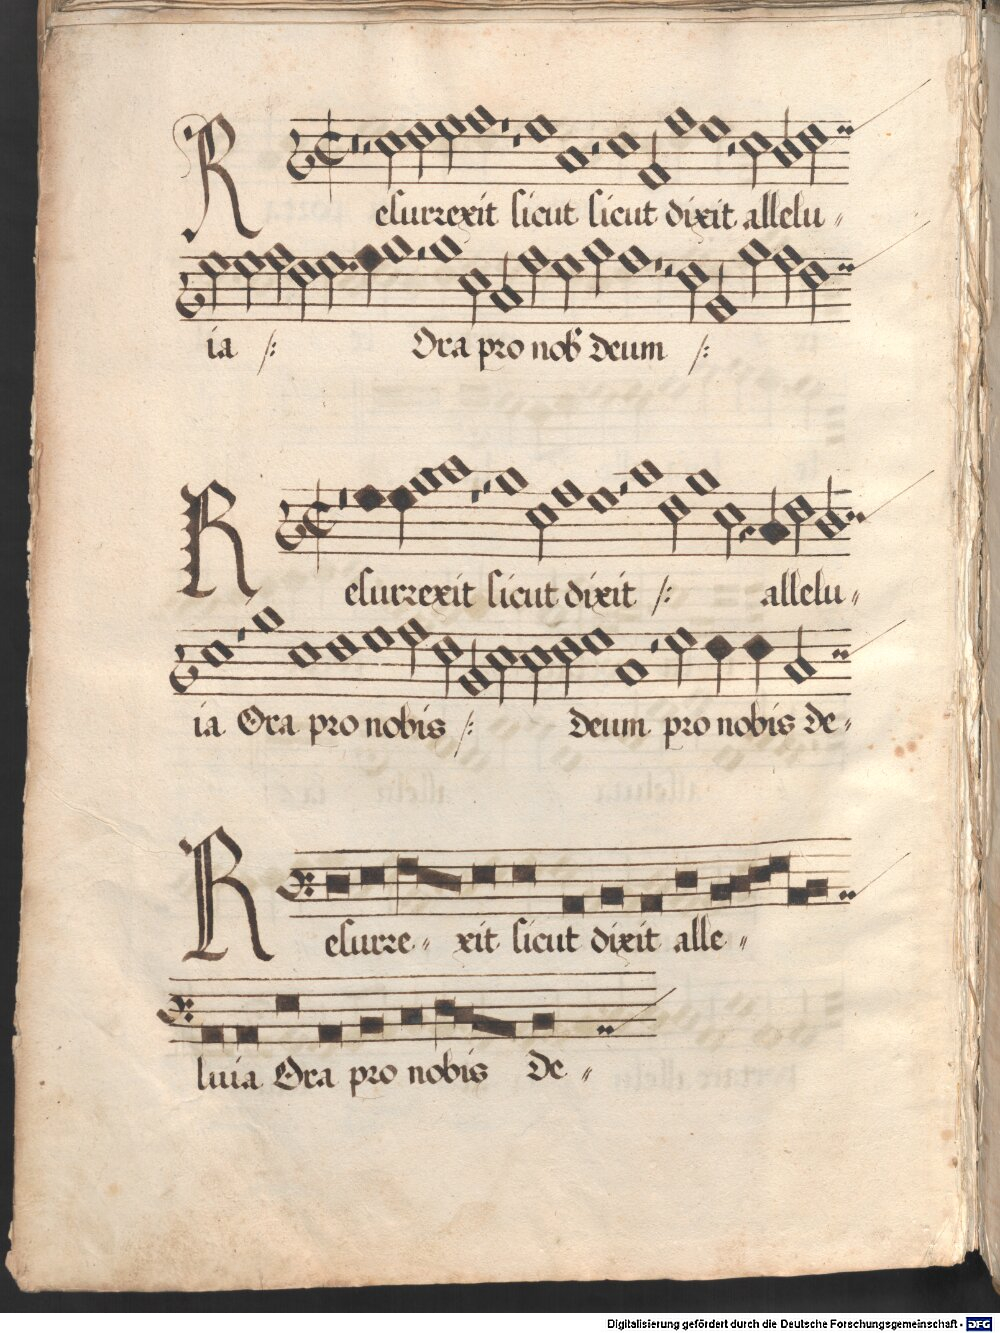 Resurrexit sicut sicut dixit allelu〃
ia /: Ora pro nob deum /:
Resurrexit sicut dixit /: allelu〃
ia Ora pro nobis /: deum pro nobis de〃
Resurre〃 xit sicut dixit alle〃
luia Ora pro nobis De〃
Digitalisierung gefördert durch die Deutsche Forschungsgemeinschaft - DFG